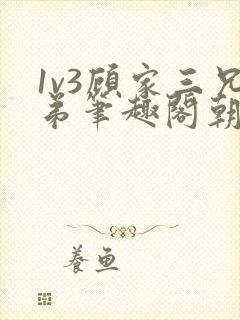 1v3顾家三兄
弟笔趣阁朝
养鱼